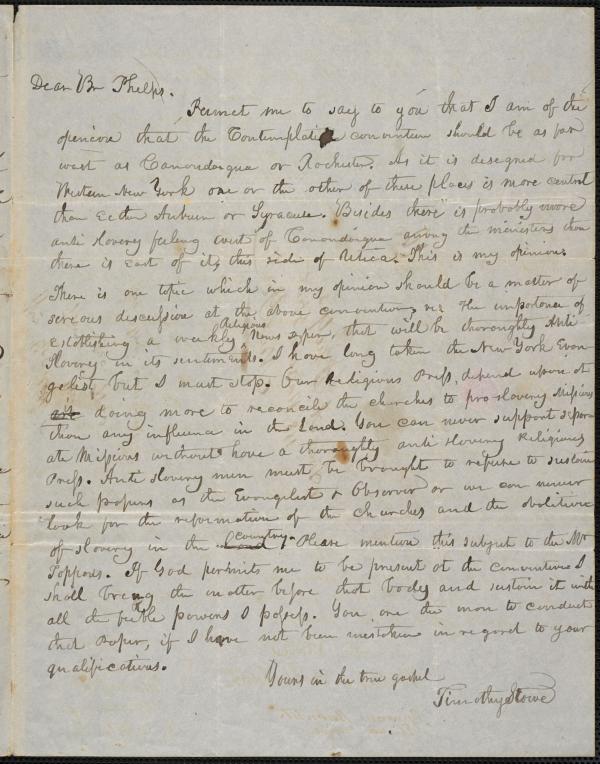 Dear Br Phelps.
Permit me to say to you that I am of the
opinion that the Contemplated convention should be as far
west as Canondaigua or Rochester. As it is designed for
Western New York one or the other of these places is more central
than either Auburn or Syracuse. Besides there is probably more
anti slavery feeling west of Canondaigua among the ministers than
there is east of it, this side of Utica. This is my opinion.
There is one topic which in my opinion should be a matter of
serious discussion at the above convention, viz. The importance of
establishing a weekly Religious News paper, that will be thoroughly Anti
Slavery in its sentiments. I have long taken the New York Evan
gelist, but I must stop. Our Religious Press, depend upon it
is doing more to reconcile the churches to pro slavery Missions
than any influence in the Land. You can never support separ
ate Missions without have a thoroughly anti slavery Religious
Press. Anti slavery men must be brought to refuse to sustain
such papers as the Evangelist & Observer or we can never
look for the reformation of the churches and the abolition
of slavery in the Land country. Please mention this subject to the Mr
Tappans. If God permits me to be present at the convention I
shall bring the matter before that body and sustain it with
all the feeble powers I possess. You are the man to conduct
that Paper, if I have not been mistaken in regard to your
qualifications.
Yours in the true gospel
Timothy Stowe